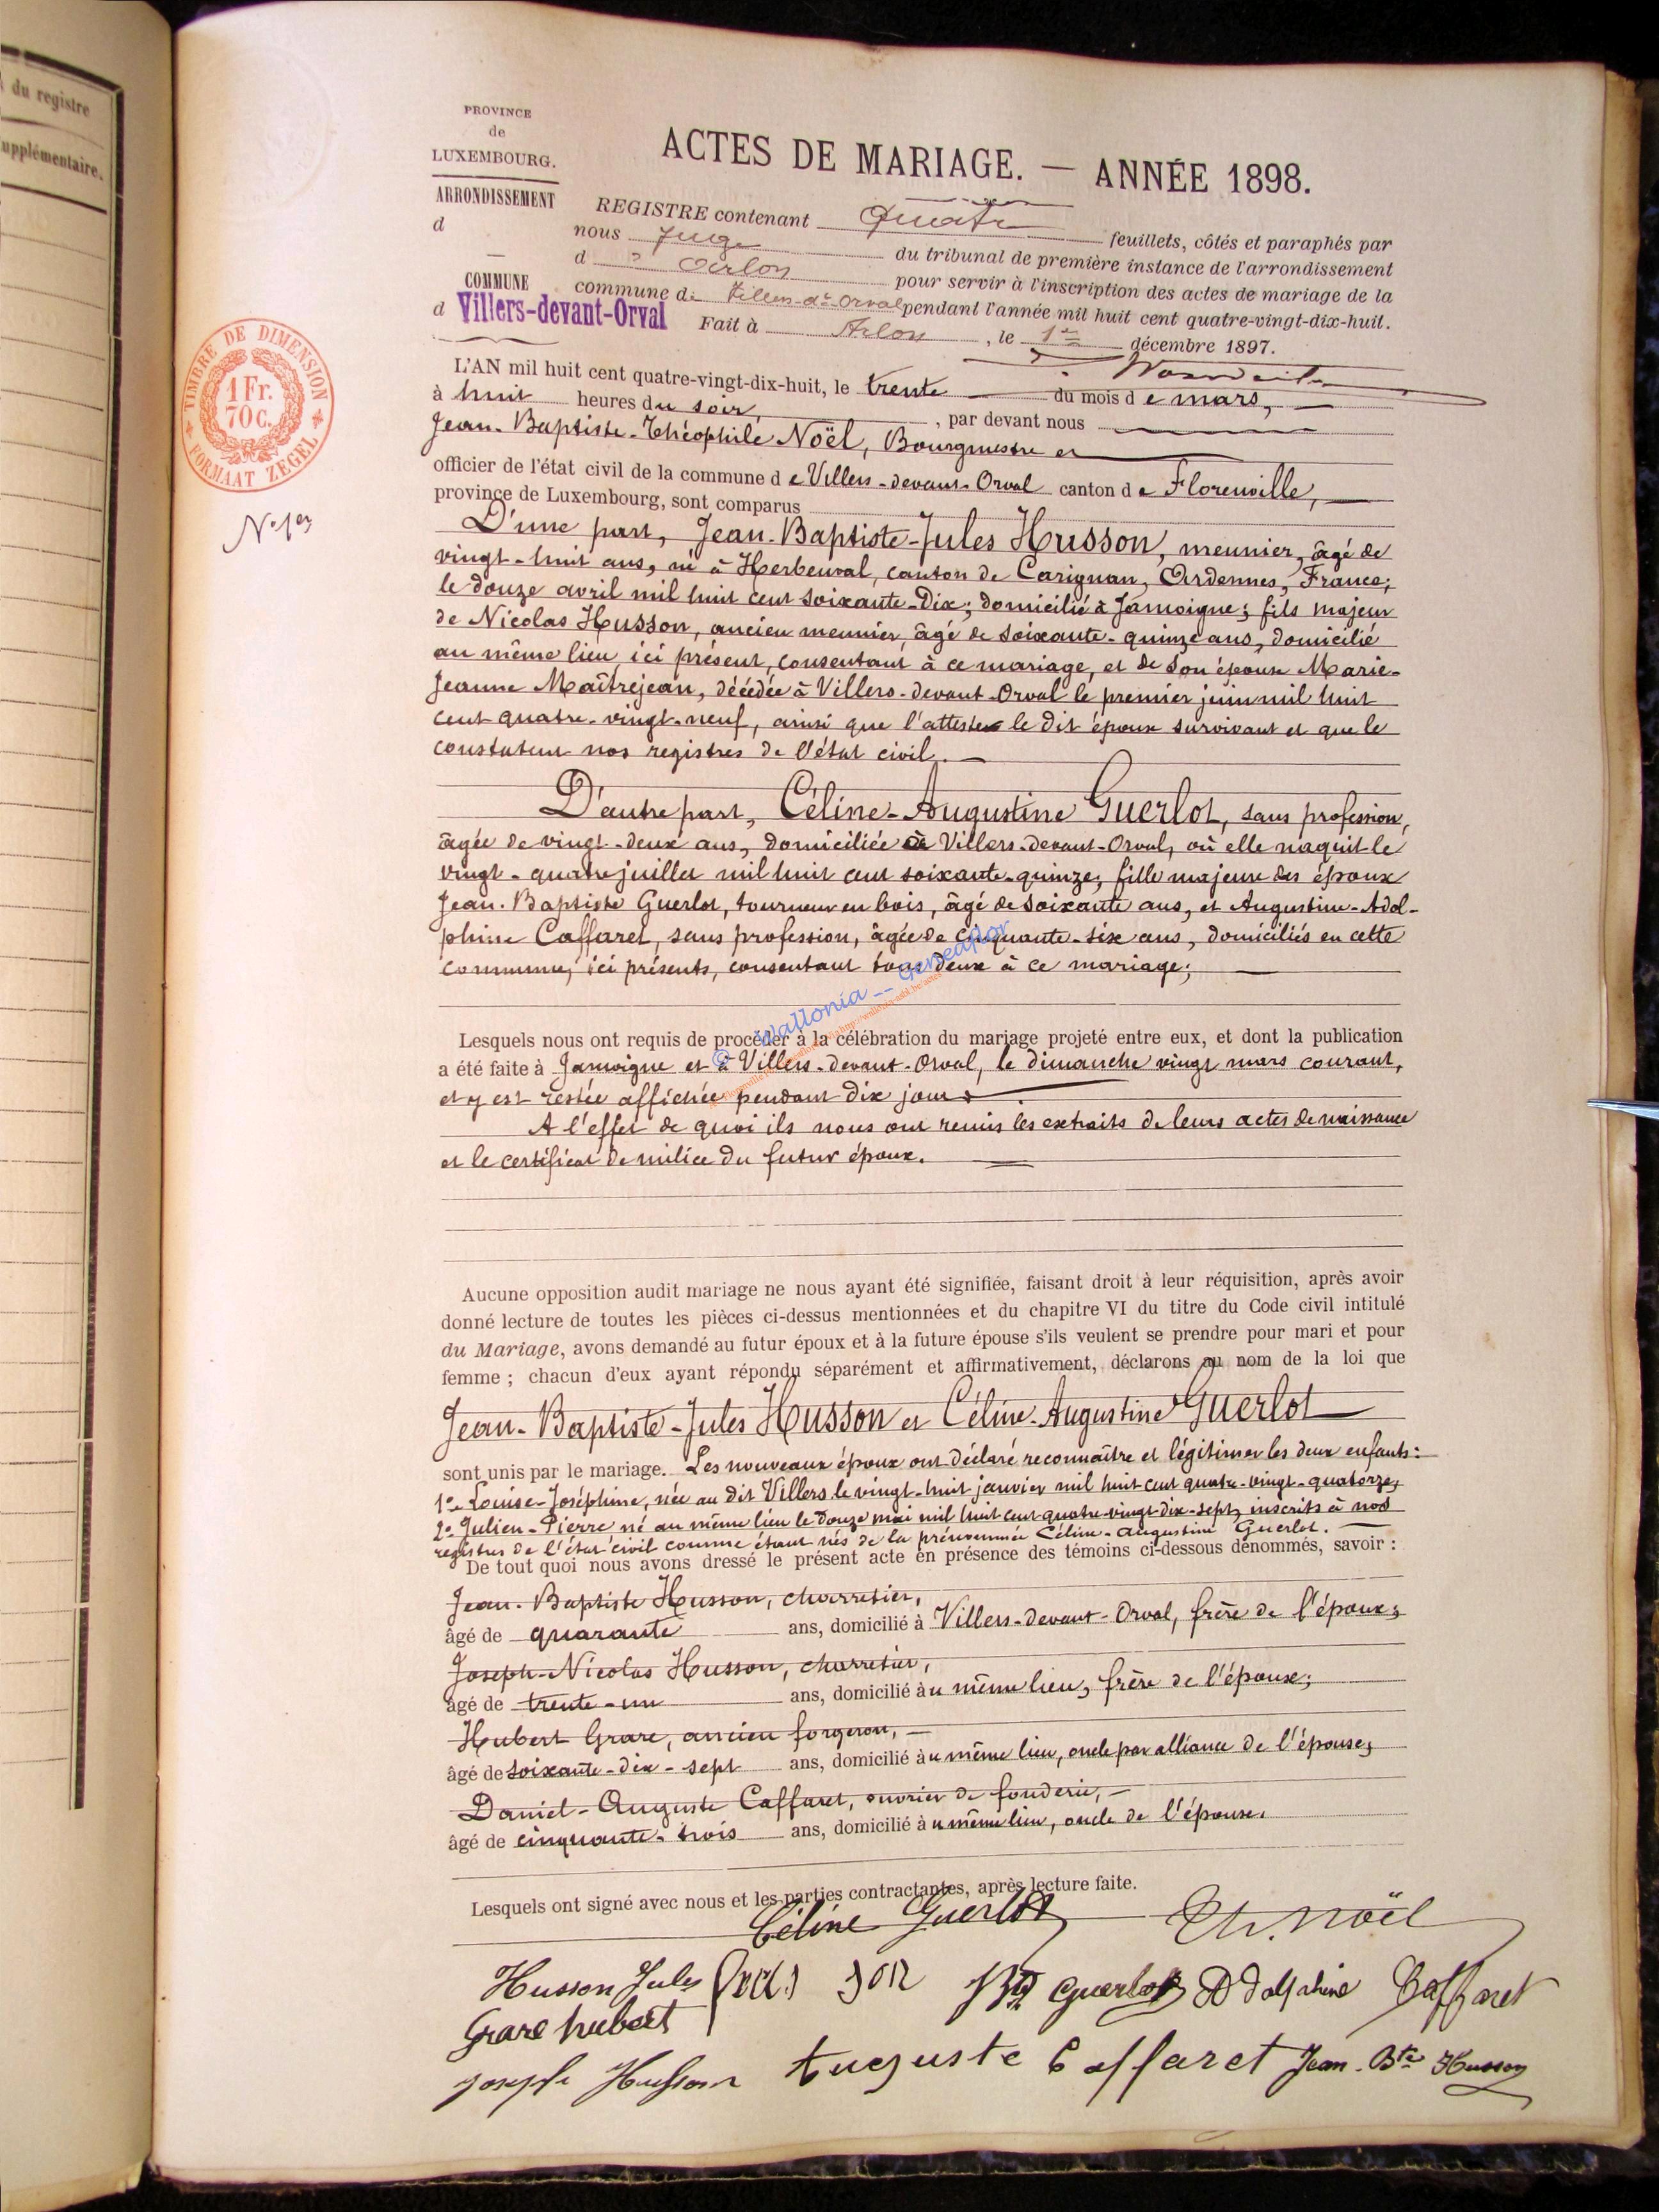 du registre
supplémentaire.
PROVINCE
de
LUXEMBOURG.
ARRONDISSEMENT
d
COMMUNE
d Villers-devant-Orval
ACTES DE MARIAGE. — ANNÉE 1898.
REGISTRE contenant Quatre feuillets, côtés et paraphés par
nous Juge du tribunal de première instance de l'arrondissement
d'Arlon pour servir à l'inscription des actes de mariage de la
commune de Villers-dt-Orval pendant l'année mil huit cent quatre-vingt-dix-huit.
Fait à Arlon, le 1er décembre 1897.
TIMBRE DE DIMENSION
1 Fr.
70 c.
FORMAAT ZEGEL
No 1er
L'AN mil huit cent quatre-vingt-dix-huit, le trente du mois de mars,
à huit heures du soir, par devant nous
Jean-Baptiste-Théophile Noël, Bourgmestre et
officier de l'état civil de la commune de Villers-devant-Orval canton de Florenville,
province de Luxembourg, sont comparus
D'une part, Jean-Baptiste-Jules Husson, meunier, âgé de
vingt-huit ans, né à Herbeuval, canton de Carignan, Ardennes, France,
le douze avril mil huit cent soixante-dix; domicilié à Jamoigne; fils majeur
de Nicolas Husson, ancien meunier, âgé de soixante-quinze ans, domicilié
au même lieu, ici présent, consentant à ce mariage, et de son épouse Marie-
Jeanne Maîtrejean, décédée à Villers-devant-Orval le premier juin mil huit
cent quatre-vingt-neuf, ainsi que l'atteste le dit époux survivant et que le
constatent nos registres de l'état civil.
D'autre part, Céline-Augustine Guerlot, sans profession,
âgée de vingt-deux ans, domiciliée à Villers-devant-Orval, où elle naquit le
vingt-quatre juillet mil huit cent soixante-quinze, fille majeure des époux
Jean-Baptiste Guerlot, tourneur en bois, âgé de soixante ans, et Augustine-Adol-
phine Caffaret, sans profession, âgée de cinquante-six ans, domiciliés en cette
commune, ici présents, consentant tous deux à ce mariage;
© wallonia -- geneaflor
Lesquels nous ont requis de procéder à la célébration du mariage projeté entre eux, et dont la publication
a été faite à Jamoigne et à Villers-devant-Orval, le dimanche vingt mars courant,
et y est restée affichée pendant dix jours.
A l'effet de quoi ils nous ont remis les extraits de leurs actes de naissance
et le certificat de milice du futur époux.
Aucune opposition audit mariage ne nous ayant été signifiée, faisant droit à leur réquisition, après avoir
donné lecture de toutes les pièces ci-dessus mentionnées et du chapitre VI du titre du Code civil intitulé
du Mariage, avons demandé au futur époux et à la future épouse s'ils veulent se prendre pour mari et pour
femme ; chacun d'eux ayant répondu séparément et affirmativement, déclarons au nom de la loi que
Jean-Baptiste-Jules Husson et Céline-Augustine Guerlot
sont unis par le mariage. Les nouveaux époux ont déclaré reconnaître et légitimer les deux enfants:
1o Louise-Joséphine, née au dit Villers le vingt-huit janvier mil huit cent quatre-vingt-quatorze,
2o Julien-Pierre né au même lieu le douze mai mil huit cent quatre-vingt-dix-sept, inscrits à nos
registres de l'état civil comme étant nés de la prénommée Céline-Augustine Guerlot.
De tout quoi nous avons dressé le présent acte en présence des témoins ci-dessous dénommés, savoir :
Jean-Baptiste Husson, charretier,
âgé de quarante ans, domicilié à Villers-devant-Orval, frère de l'époux;
Joseph-Nicolas Husson, charretier,
âgé de trente-un ans, domicilié au même lieu, frère de l'époux;
Hubert Grare, ancien forgeron,
âgé de soixante-dix-sept ans, domicilié au même lieu, oncle par alliance de l'épouse;
Daniel-Auguste Caffaret, ouvrier de fonderie,
âgé de cinquante-trois ans, domicilié au même lieu, oncle de l'épouse.
Lesquels ont signé avec nous et les parties contractantes, après lecture faite.
Céline Guerlot Th. Noël
Husson Jules Bte Guerlot Adolphine Caffaret
Grare hubert
joseph Husson Auguste Caffaret Jean-Bte Husson